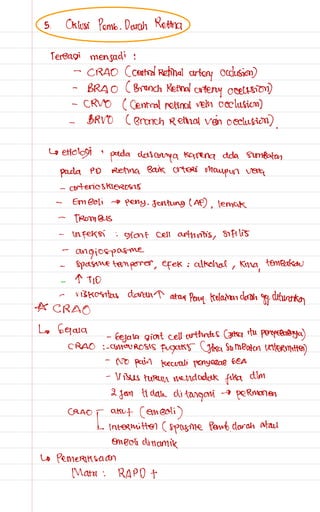 5. Oklusi Pemb. Darah Retina
Terbagi menjadi :
- CRAO (Central Retinal artery occlusion)
- BRAO (Branch Retinal artery occlusion)
- CRVO (Central retinal vein occlusion)
- BRVO (Branch Retinal vein occlusion).
↳ etiologi : pada dasarnya karena ada sumbatan
pada PD Retina Baik arteri maupun vena
- arteriosklerosis
- Emboli → peny. Jantung (AF), lemak
- TROMBUS
- infeksi : giant cell arthritis, sifilis
- angiospasme
- spasme temporer, efek : alkohol, kina, tembakau
- ↑ TIO
- viskositas darah ↑ atau Peny. kelainan darah yg diturunkan
☆ CRAO
↳ Gejala
- Gejala giant cell arthritis (Jika itu penyebabnya)
CRAO : - amaurosis fugaks (Jika sumbatan intermitten)
- NO pain kecuali penyebab GCA
- Visus turun mendadak jika dlm
2 jam tidak ditangani → permanen
CRAO akut (emboli)
Intermitten (spasme Pemb darah atau
emboli dinamik
↳ Pemeriksaan
Mata : RAPD +